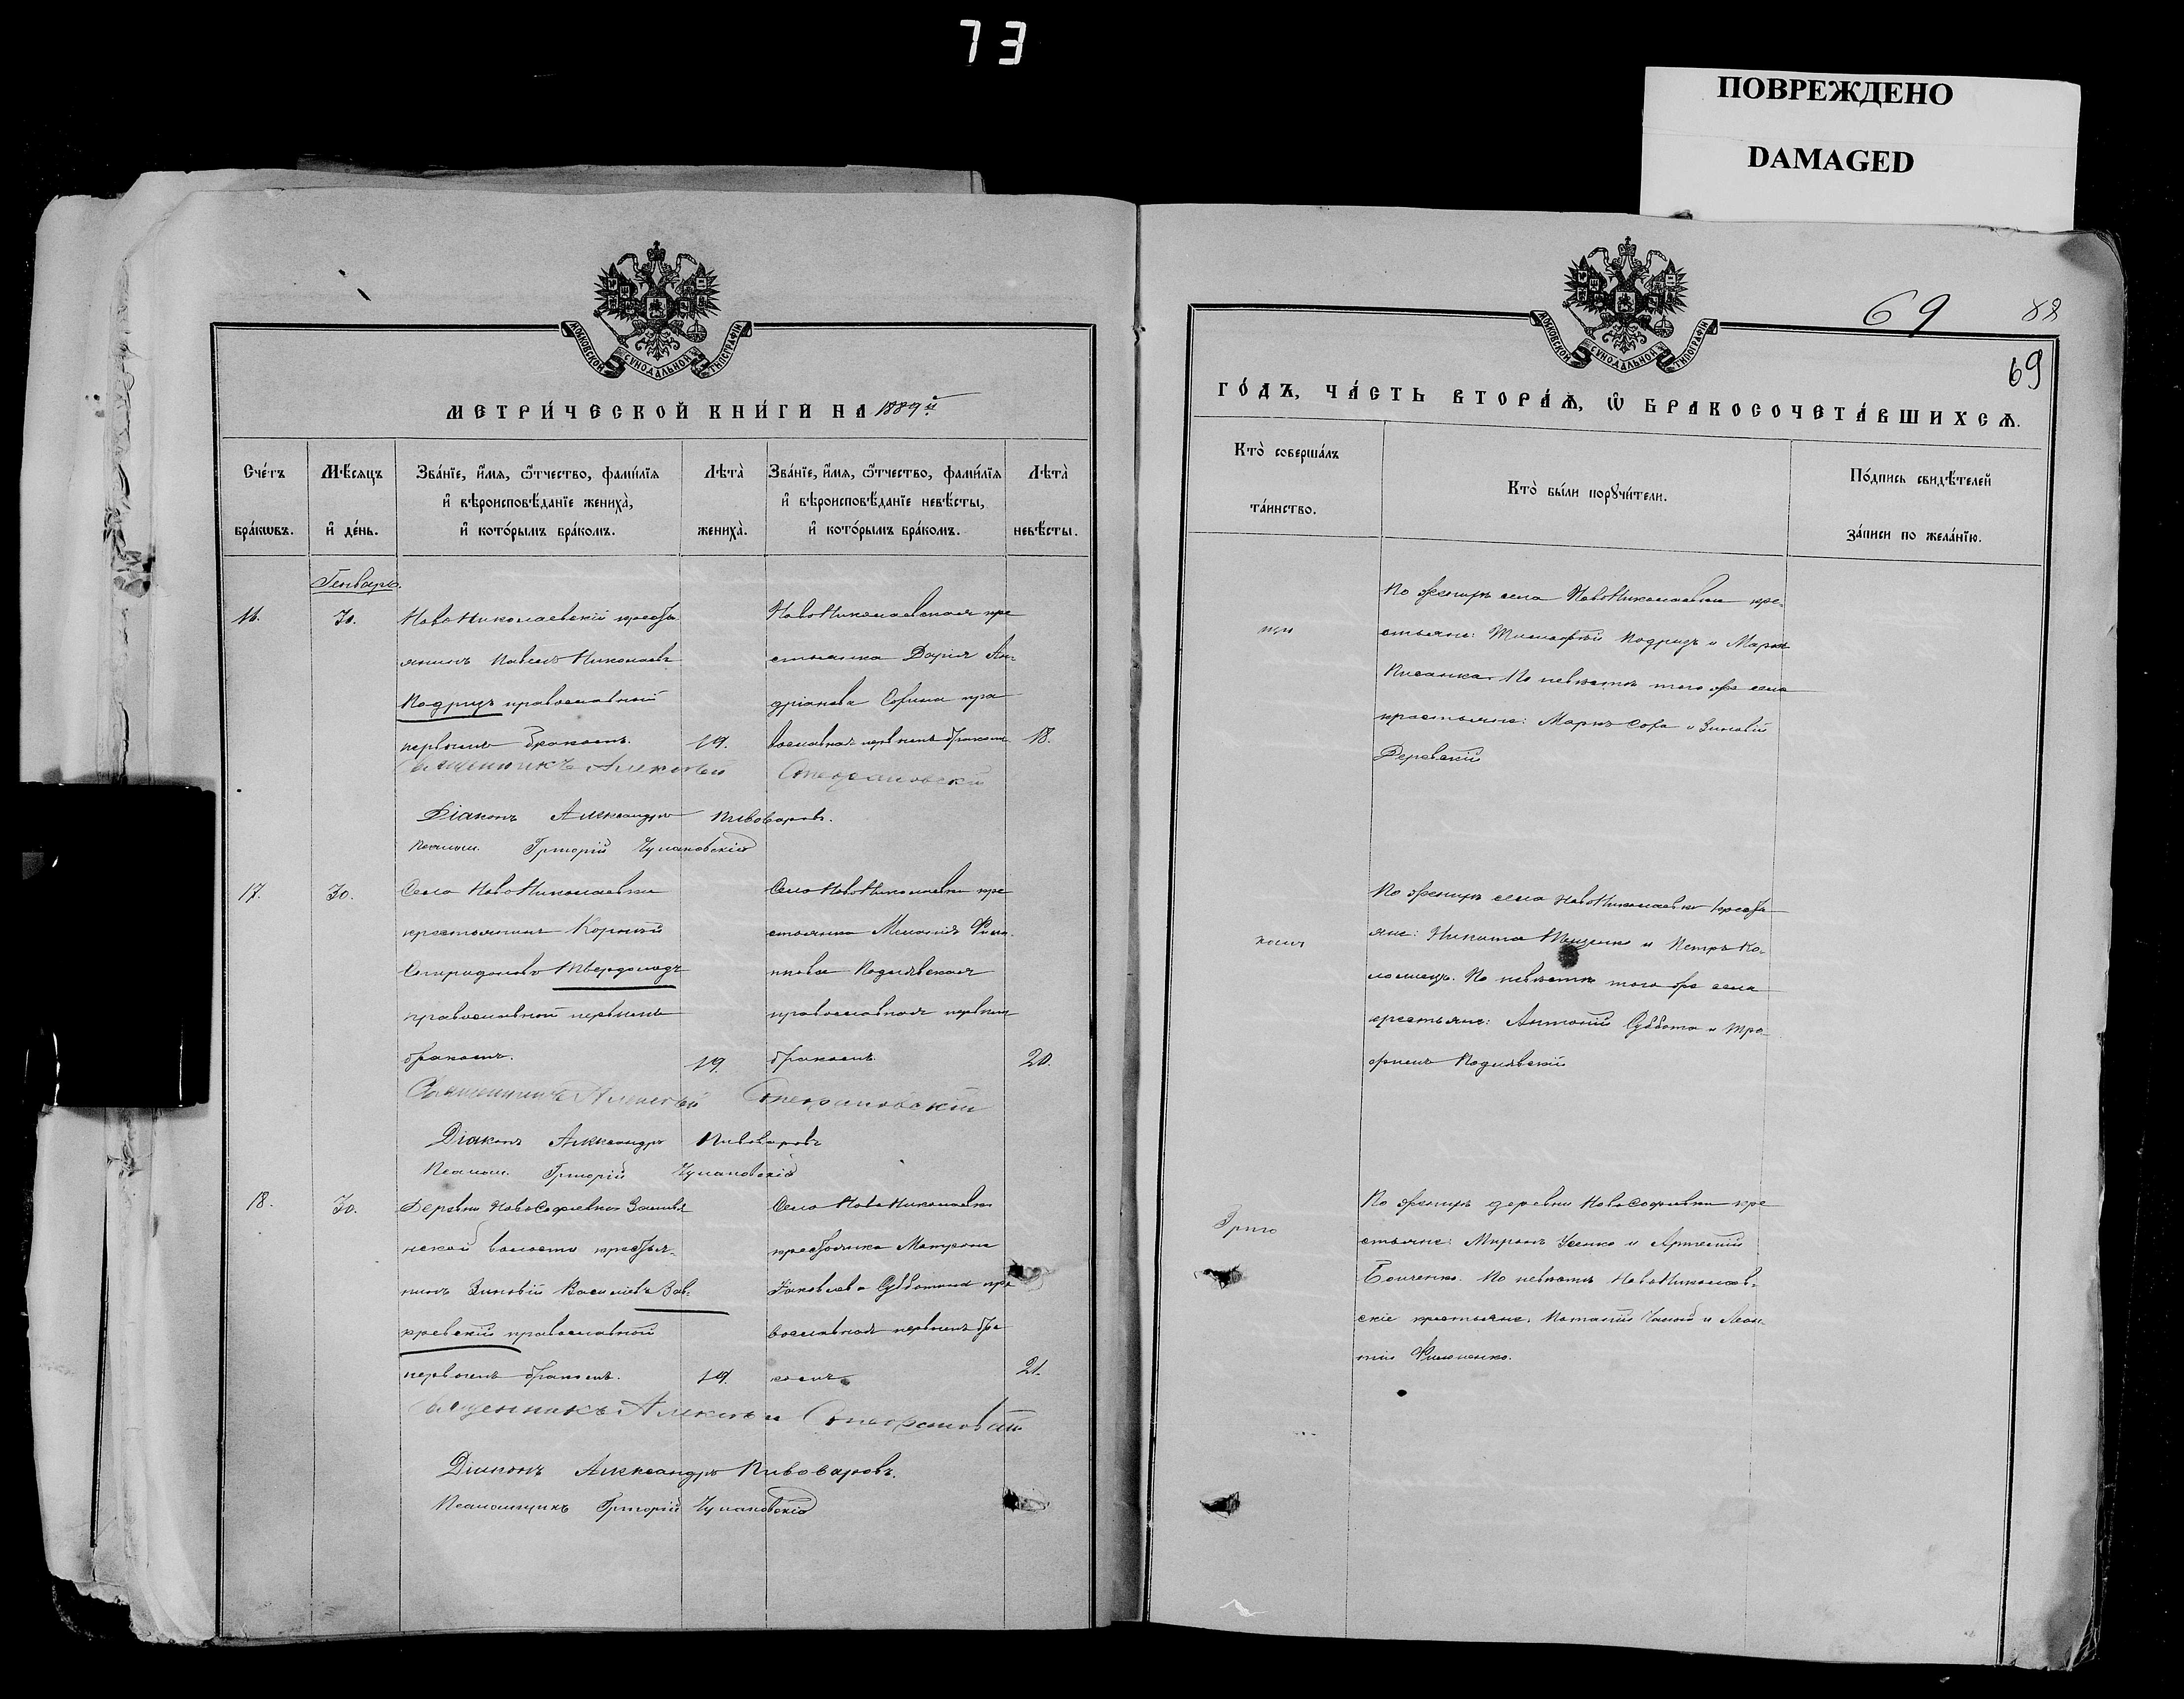 73
ПОВРЕЖДЕНО
DAMAGED
МОСКОВСКОЙ СУНОДАЛЬНОЙ ТИПОГРАФІИ
МЕТРИ́ЧЕСКОЙ КНИ́ГИ НА 1889й
Сче́тъ бра́кѡвъ.
Мѣ́сяцъ и҆ де́нь.
Зва́нїе, и҆́мя, ѻ҆́тчество, фами́лїя
и҆ вѣроисповѣ́данїе жениха̀,
и҆ кото́рымъ бра́комъ.
Лѣта̀ жениха̀.
Зва́нїе, и҆́мя, ѻ҆́тчество, фами́лїя
и҆ вѣроисповѣ́данїе невѣ́сты,
и҆ кото́рымъ бра́комъ.
Лѣта̀ невѣ́сты.
Генварь.
16.
30.
НовоНиколаевскій кресть
янинъ Павелъ Николаевъ
Кодрицъ православный
первымъ бракомъ.
19.
НовоНиколаевская кре
стьянка Дарія Ан-
дріанова Сорина пра
вославная первымъ бракомъ
18.
Священникъ Алексѣй
Діаконъ Александръ Пивоваровъ.
Псалом. Григорій Чулановскій
17.
30.
Села НовоНиколаевки
крестьянинъ Корнилій
Спиридоновъ Твердохлѣбъ
православный первымъ
бракомъ.
19.
Села НовоНиколаевки кре
стьянка
православная первымъ
бракомъ
20.
Священникъ Алексѣй
Діаконъ Александръ Пивоваровъ
Псалом. Григорій Чулановскій
18.
30.
Деревни НовоСофіевки
волости крестья-
нинъ Зиновій Васильевъ Зак-
ревскій православный
первымъ бракомъ.
19.
Села НовоНиколаевки
крестьянка Матрона
Іаковлева Субботина пра
вославная первымъ бра
комъ
21.
Священникъ Алексѣй
Діаконъ Александръ Пивоваровъ.
Псаломщикъ Григорій Чулановскій
69
88
69
МОСКОВСКОЙ СУНОДАЛЬНОЙ ТИПОГРАФІИ
ГО́ДЪ, ЧА́СТЬ ВТОРА́Ѧ, Ѡ҆ БРАКОСОЧЕТА́ВШИХСѦ.
Кто̀ соверша́лъ
та́инство.
Кто̀ бы́ли порꙋчи́тели.
По́дпись свидѣ́телей
за́писи по жела́нїю.
По женихѣ села НовоНиколаевки кре-
стьяне: Тимофѣй Кодрицъ и Марко
Писанка. По невѣстѣ того же села
крестьяне: Марко Сова и Зиновій
Деревскій
По женихѣ села НовоНиколаевки кресть
яне: Никита и Петръ Ко-
ломіецъ. По невѣстѣ того же села
крестьяне: Антоній Суббота и Тро
фимъ
Григо
По женихѣ деревни НовоСофіевки кре
стьяне: Миронъ Усенко и Артемій
Бойченко. По невѣстѣ НовоНиколаев-
скіе крестьяне: Потапій и Леон-
тій Филоненко.